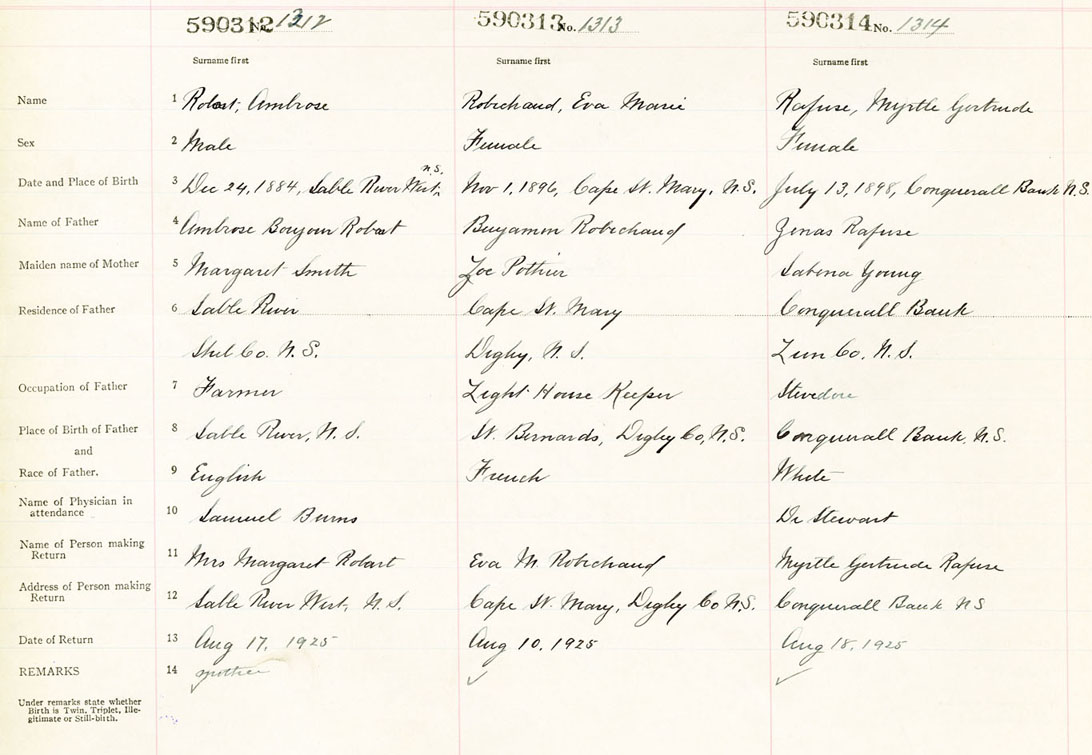 590312 No. 1312 590313 No. 1313 590314 No. 1314
Surname first Surname first Surname first
Name 1 Robart, Ambrose Robichaud, Eva Marie Rafuse, Myrtle Gertrude
Sex 2 Male Female Female
Date and Place of Birth 3 Dec 24, 1884, Sable River West, N.S. Nov 1, 1896, Cape St. Mary, N.S. July 13, 1898, Conquerall Bank N.S.
Name of Father 4 Ambrose Bonjour Robart Benjamin Robichaud Zenas Rafuse
Maiden name of Mother 5 Margaret Smith Zoe Pothier Sabena Young
Residence of Father 6 Sable River Cape St. Mary Conquerall Bank
Shel Co. N.S. Digby, N.S. Lun Co. N.S.
Occupation of Father 7 Farmer Light House Keeper Stevedore
Place of Birth of Father 8 Sable River, N.S. St. Bernards, Digby Co, N.S. Conquerall Bank, N.S.
and
Race of Father. 9 English French White
Name of Physician in
attendance 10 Samuel Burns Dr Stewart
Name of Person making
Return 11 Mrs Margaret Robart Eva M Robichaud Myrtle Gertrude Rafuse
Address of Person making
Return 12 Sable River West, N.S. Cape St. Mary, Digby Co N.S. Conquerall Bank NS
Date of Return 13 Aug 17, 1925 Aug 10, 1925 Aug 18, 1925
REMARKS 14 mother
Under remarks state whether
Birth is Twin, Triplet, Ille-
gitimate or Still-birth.